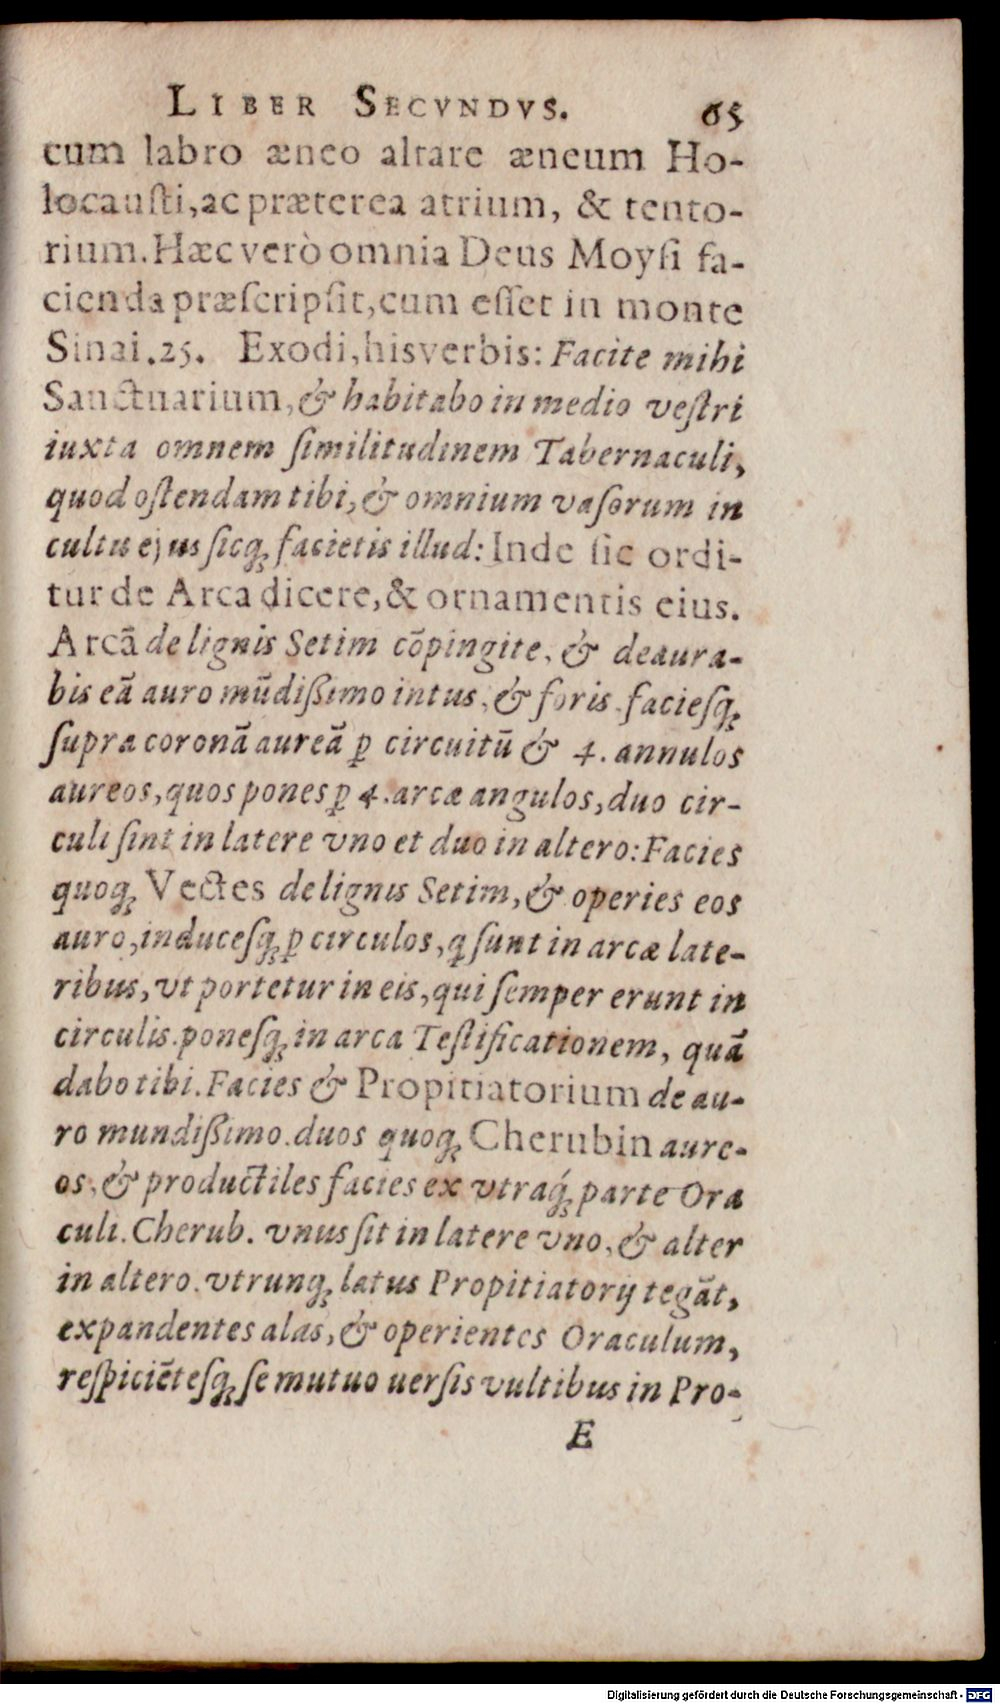 LIBER SECVNDVS. 65
cum labro æneo altare æneum Ho-
locauſti, ac præterea atrium, & tento-
rium. Hæc verò omnia Deus Moyſi fa-
cienda præſcripſit, cum eſſet in monte
Sinai. 25. Exodi, his verbis: Facite mihi
Sanctuarium, & habitabo in medio veſtri
iuxta omnem ſimilitudinem Tabernaculi,
quod oſtendam tibi, & omnium vaſorum in
cultu ejus ſicq; facietis illud: Inde ſic ordi-
tur de Arca dicere, & ornamentis eius.
Arcā de lignis Setim cōpingite, & deaura-
bis eā auro mūdiſſimo intus, & foris. facieſq;
ſupra coronā aureā ꝑ circuitū & 4. annulos
aureos, quos pones ꝑ 4. arcæ angulos, duo cir-
culi ſint in latere vno et duo in altero: Facies
quoq; Vectes de lignis Setim, & operies eos
auro, induceſq; ꝑ circulos, ꝗ ſunt in arcæ late-
ribus, vt portetur in eis, qui ſemper erunt in
circulis. poneſq; in arca Teſtificationem, quā
dabo tibi. Facies & Propitiatorium de au-
ro mundiſſimo. duos quoq; Cherubin aure-
os, & productiles facies ex vtraq́; parte Ora
culi. Cherub. vnus ſit in latere vno, & alter
in altero. vtrunq; latus Propitiatorij tegāt,
expandentes alas, & operientes Oraculum,
reſpiciētesq; ſe mutuo uerſis vultibus in Pro-
E
Digitalisierung gefördert durch die Deutsche Forschungsgemeinschaft - DFG